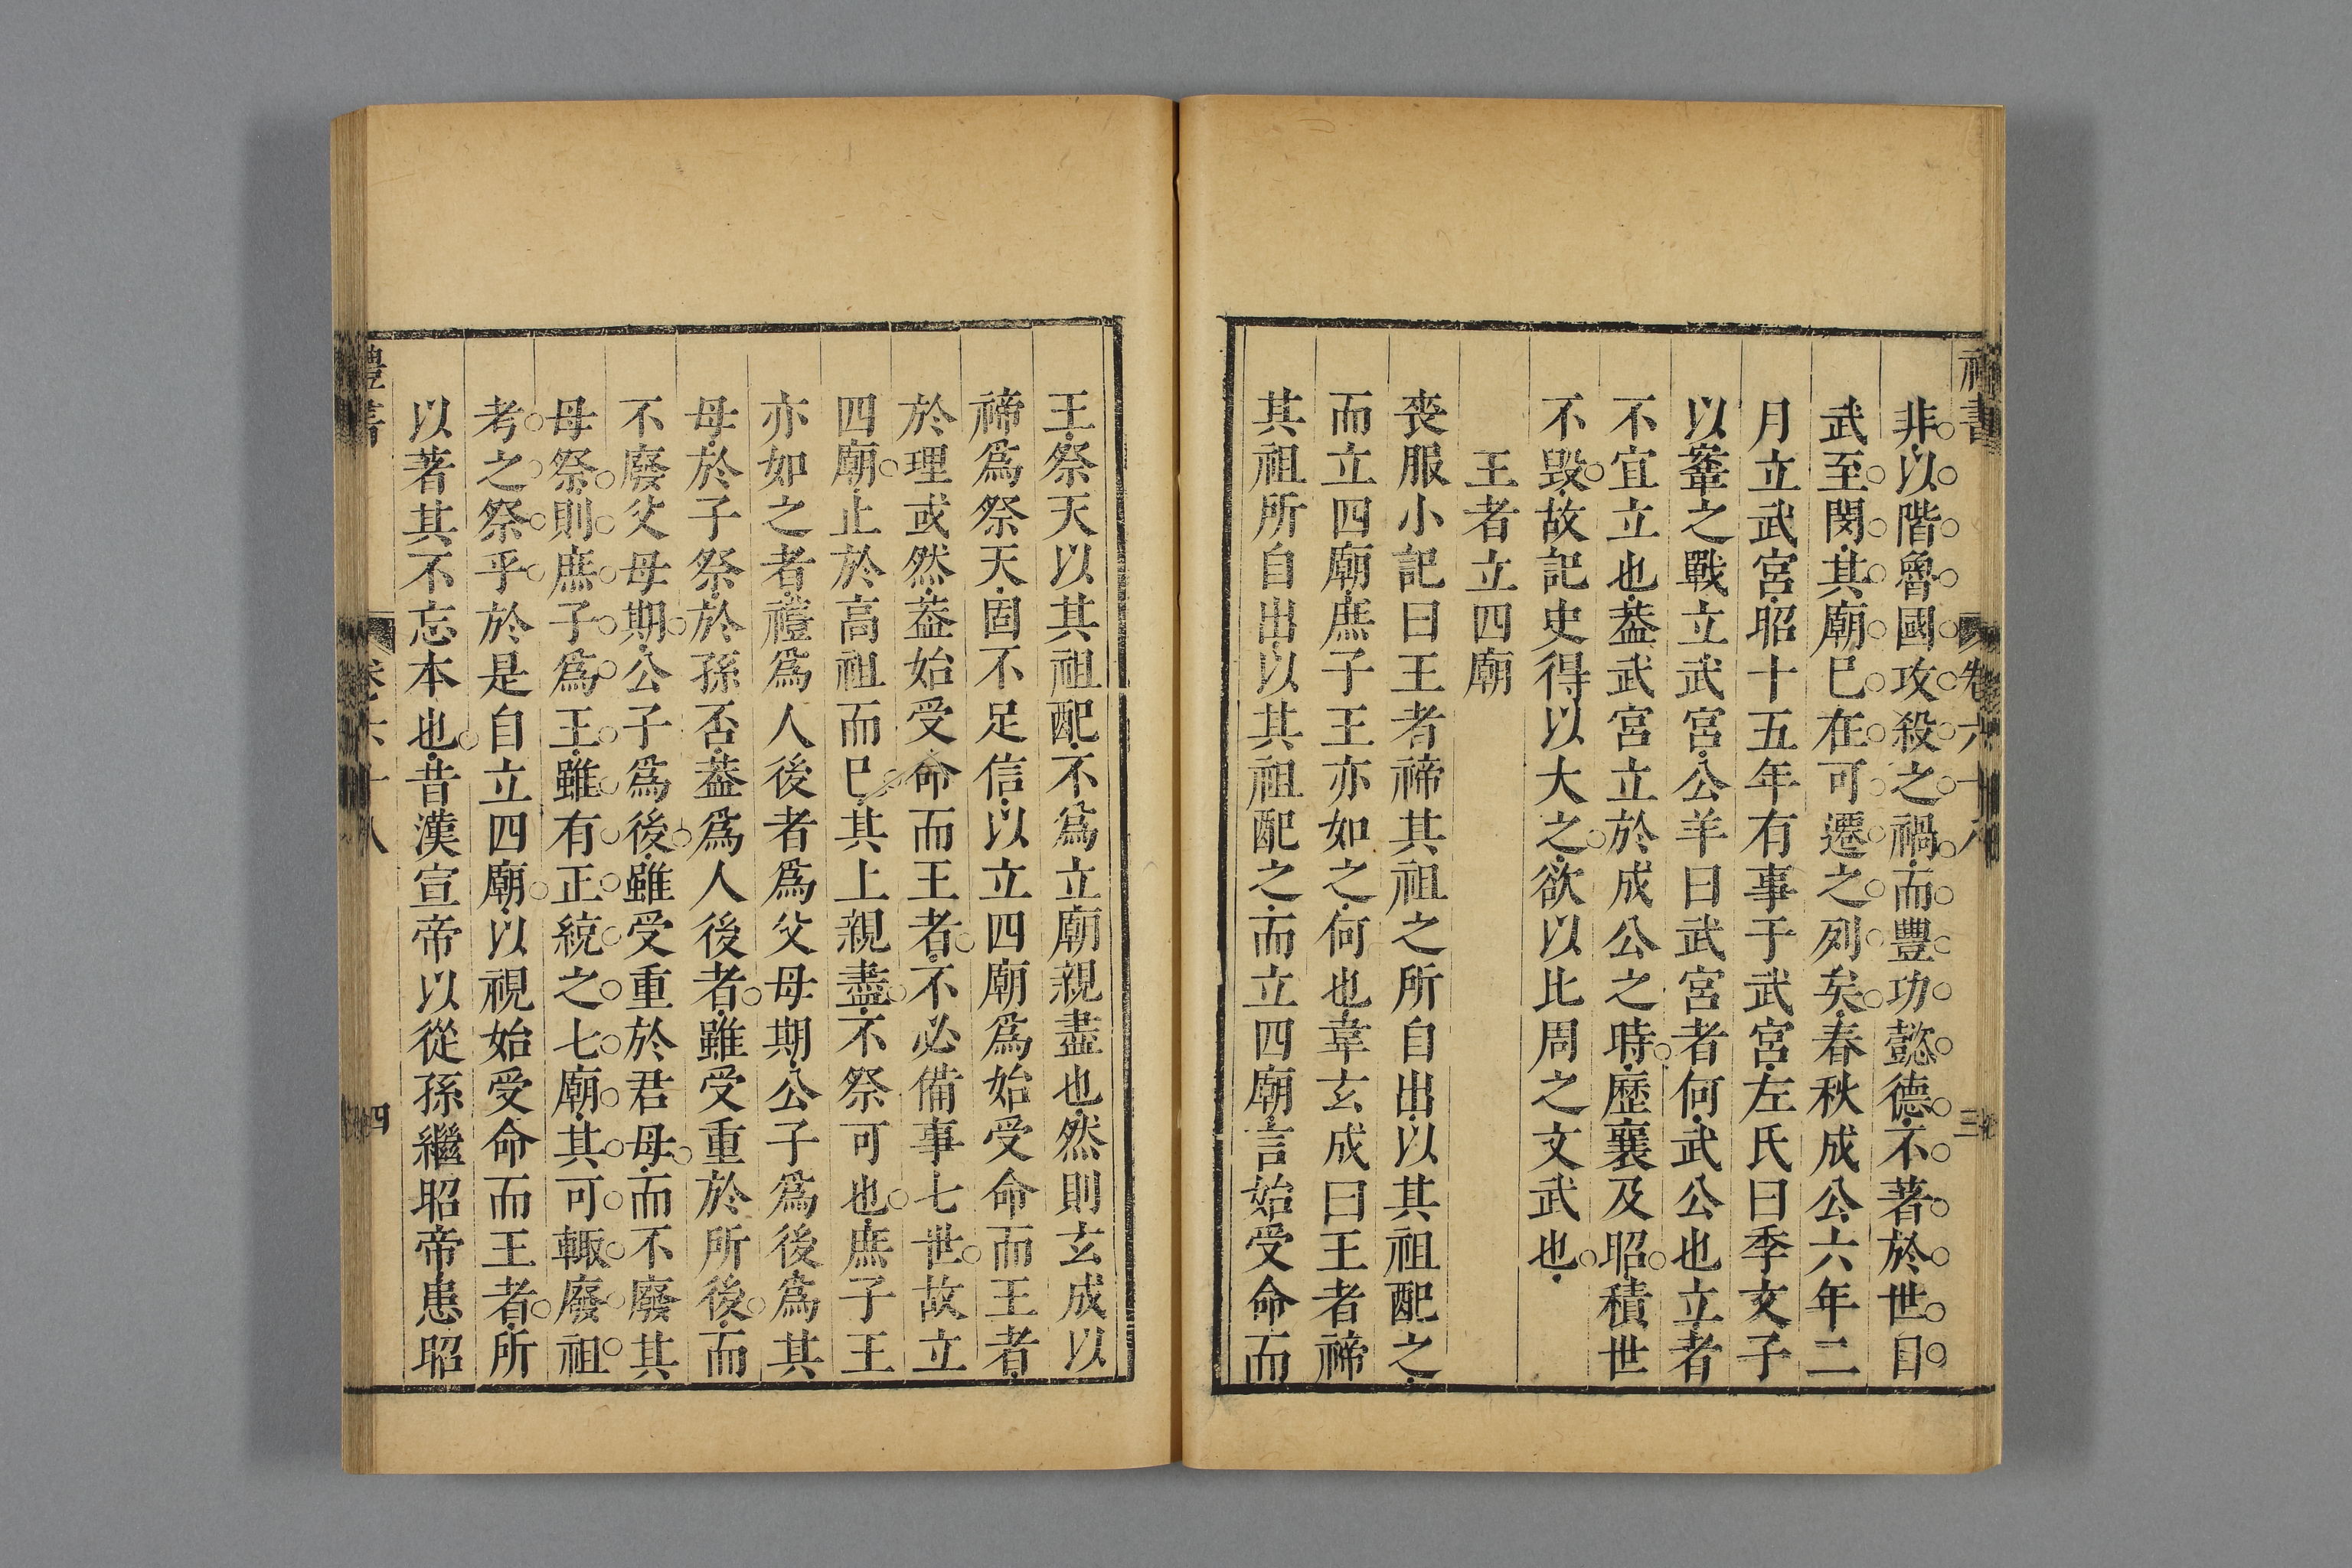 禮書 卷六十八 三
非以階魯國攻殺之禍而豐功懿德不著於世自
武至閔其廟已在可遷之列矣春秋成公六年二
月立武宮昭十五年有事于武宮左氏曰季文子
以鞌之戰立武宮公羊曰武宮者何武公也立者
不宜立也葢武宮立於成公之時歷襄及昭積世
不毀故記史得以大之欲以比周之文武也
王者立四廟
喪服小記曰王者禘其祖之所自出以其祖配之
而立四廟庶子王亦如之何也韋玄成曰王者禘
其祖所自出以其祖配之而立四廟言始受命而
王祭天以其祖配不爲立廟親盡也然則玄成以
禘爲祭天固不足信以立四廟爲始受命而王者
於理或然葢始受命而王者不必備事七世故立
四廟止於高祖而已其上親盡不祭可也庶子王
亦如之者禮爲人後者爲父母期公子爲後爲其
母於子祭於孫否葢爲人後者雖受重於所後而
不廢父母期公子爲後雖受重於君母而不廢其
母祭則庶子爲王雖有正統之七廟其可輙廢祖
考之祭乎於是自立四廟以視始受命而王者所
以著其不忘本也昔漢宣帝以從孫繼昭帝患昭
禮書 卷之六十八 四